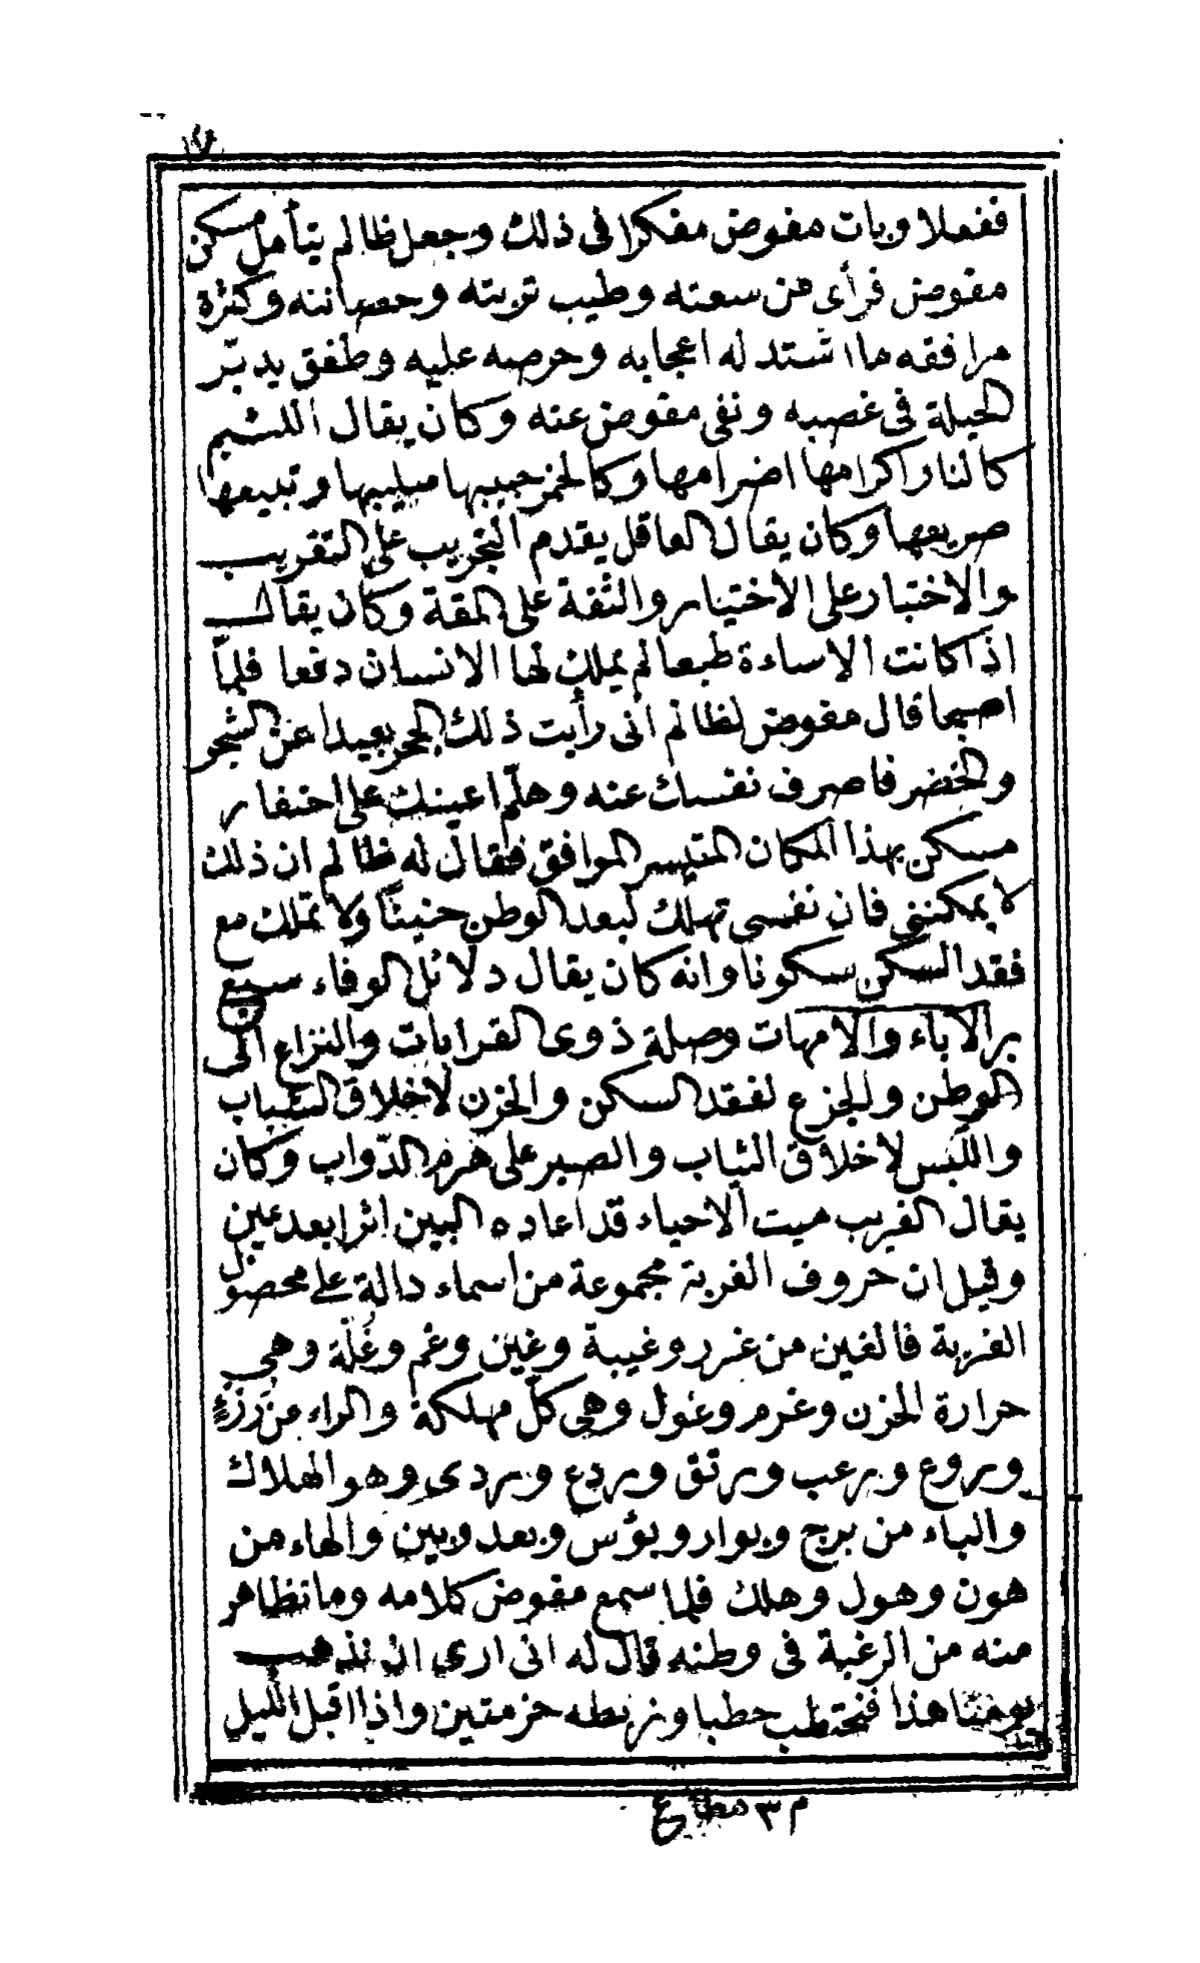 ١٧
ففعلا وبات مفوض مفكرا فى ذلك وجعل ظالم يتأمل مسكن
مفوض فرأى من سعته وطيب تربته وحصانته وكثرة
مرافقه ما اشتد له اعجابه وحرصه عليه وطفق يدبّر
الحيلة فى غصبه ونفى مفوض عنه وكان يقال اللئيم
كالنار اكرامها اضرامها وكالخمر حبيبها سليبها وتبيعها
صريعها وكان يقال العاقل يقدم التجريب على التقريب
والاختبار على الاختيار والثقة على المقة وكان يقال
اذا كانت الاساءة طبعا لم يملك لها الانسان دفعا فلمّا
اصبحا قال مفوض لظالم انى رأيت ذلك الجحر بعيدا عن الشجر
والخضر فاصرف نفسك عنه وهلمّ اعينك على احتفار
مسكن بهذا المكان المتيسر الموافق فقال له ظالم ان ذلك
لا يمكننى فان نفسى تهلك لبعد الوطن حنينًا ولا تملك مع
فقد السكن سكونا وانه كان يقال دلائل الوفاء سبع
بر الآباء والامهات وصلة ذوى القرابات والنزاع الى
الوطن والجزع لفقد السكن والحزن لاخلاق الشباب
واللبس لاخلاق الثياب والصبر على هرم الدّواب وكان
يقال الغريب ميت الاحياء قد اعاده البين اثرا بعد عين
وقيل ان حروف الغربة مجموعة من اسماء دالة على محصول
الغربة فالغين من غرر وغيبة وغبن وغم وغُلّة وهى
حرارة الحزن وغرم وغول وهى كلّ مهلكة والراء من رُزْءٍ
وروع ورعب ورتق وردع وردى وهو الهلاك
والباء من برح وبوار وبؤس وبعد وبين والهاء من
هون وهول وهلك فلما سمع مفوض كلامه وما تظاهر
منه من الرغبة فى وطنه قال له انى ارى ان نذهب
يومنا هذا فنحتطب حطبا ونربطه حزمتين واذا اقبل الليل
م ٣ مطاع